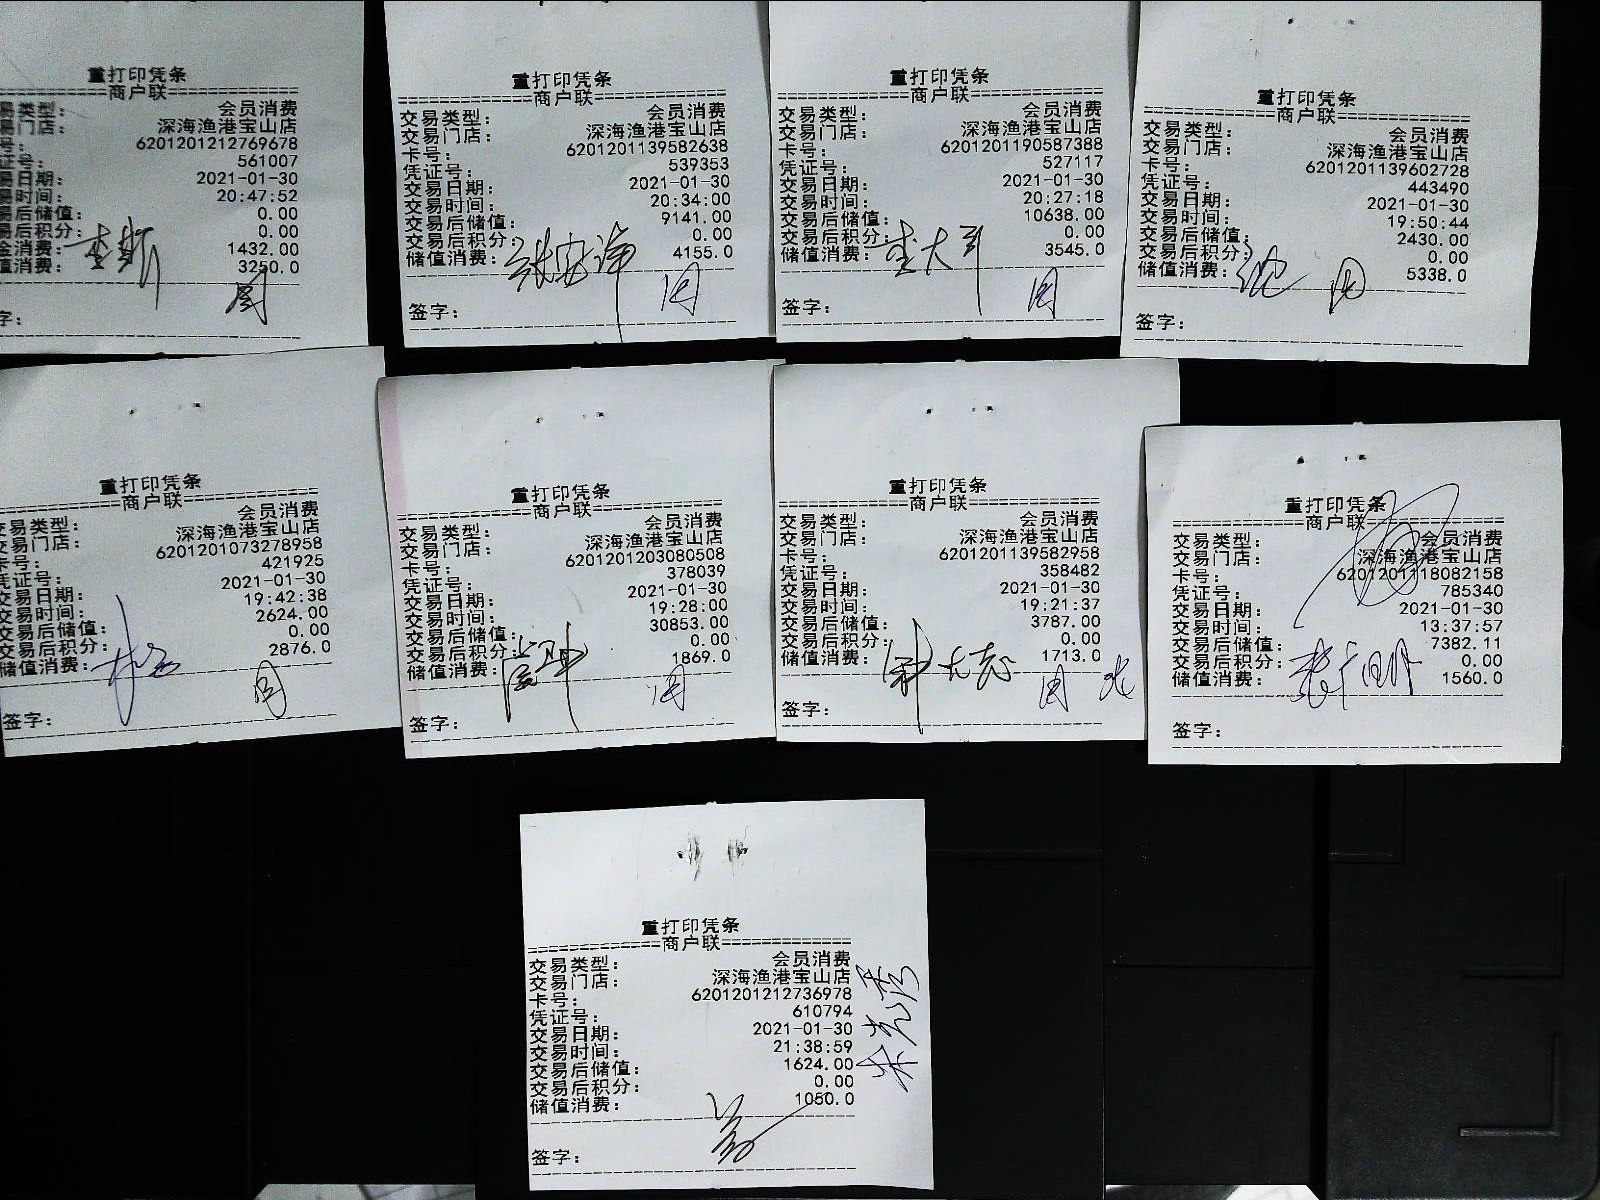 重打印凭条
商户联
易类型： 会员消费
易门店： 深海渔港宝山店
号： 6201201212769678
证号： 561007
易日期： 2021-01-30
易时间： 20:47:52
易后储值： 0.00
易后积分： 0.00
金消费： 1432.00
值消费： 3250.0
字：
重打印凭条
商户联
交易类型： 会员消费
交易门店： 深海渔港宝山店
卡号： 6201201139582638
凭证号： 539353
交易日期： 2021-01-30
交易时间： 20:34:00
交易后储值： 9141.00
交易后积分： 0.00
储值消费： 4155.0
签字：
重打印凭条
商户联
交易类型： 会员消费
交易门店： 深海渔港宝山店
卡号： 6201201190587388
凭证号： 527117
交易日期： 2021-01-30
交易时间： 20:27:18
交易后储值： 10638.00
交易后积分： 0.00
储值消费： 3545.0
签字：
重打印凭条
商户联
交易类型： 会员消费
交易门店： 深海渔港宝山店
卡号： 6201201139602728
凭证号： 443490
交易日期： 2021-01-30
交易时间： 19:50:44
交易后储值： 2430.00
交易后积分： 0.00
储值消费： 5338.0
签字：
重打印凭条
商户联
交易类型： 会员消费
交易门店： 深海渔港宝山店
卡号： 6201201073278958
凭证号： 421925
交易日期： 2021-01-30
交易时间： 19:42:38
交易后储值： 2624.00
交易后积分： 0.00
储值消费： 2876.0
签字：
重打印凭条
商户联
交易类型： 会员消费
交易门店： 深海渔港宝山店
卡号： 6201201203080508
凭证号： 378039
交易日期： 2021-01-30
交易时间： 19:28:00
交易后储值： 30853.00
交易后积分： 0.00
储值消费： 1869.0
签字：
重打印凭条
商户联
交易类型： 会员消费
交易门店： 深海渔港宝山店
卡号： 6201201139582958
凭证号： 358482
交易日期： 2021-01-30
交易时间： 19:21:37
交易后储值： 3787.00
交易后积分： 0.00
储值消费： 1713.0
签字：
重打印凭条
商户联
交易类型： 会员消费
交易门店： 深海渔港宝山店
卡号： 6201201118082158
凭证号： 785340
交易日期： 2021-01-30
交易时间： 13:37:57
交易后储值： 7382.11
交易后积分： 0.00
储值消费： 1560.0
签字：
重打印凭条
商户联
交易类型： 会员消费
交易门店： 深海渔港宝山店
卡号： 6201201212736978
凭证号： 610794
交易日期： 2021-01-30
交易时间： 21:38:59
交易后储值： 1624.00
交易后积分： 0.00
储值消费： 1050.0
签字：